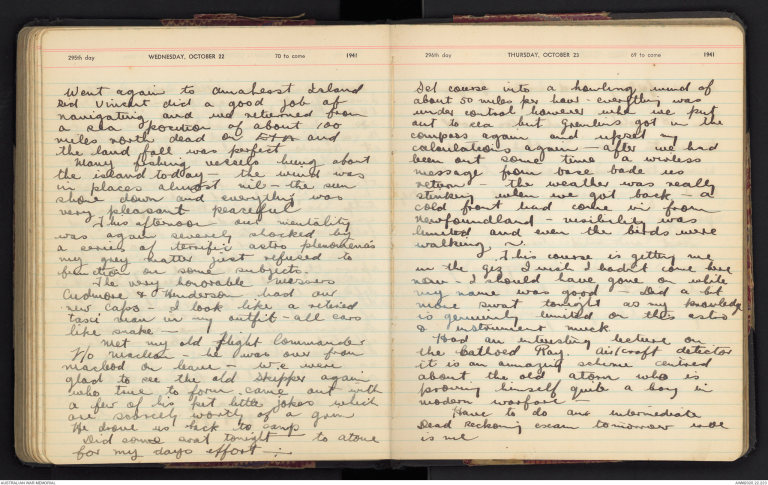 295th day WEDNESDAY, OCTOBER 22 70 to come 1941
Went again to Amaherst Island
and Vincent did a good job of
navigating and we returned from
a sea position of about 100
miles north dead on and
the land fall was perfect
Many fishing vessels being about
the island today - the wind was
in places almost nil - the sun
shone down and everything was
very pleasant peaceful
This afternoon - our mentality
was again severely shocked by
a series of terrific astro phenomena's
my grey matter just refused to
function on some subjects.
The very honorable messers
Cudmore & Henderson had our
new caps - I look like a retired
taxi man in my outfit - all ears
like snake -
Met my old flight Commander
F/O Maclean - he was over from
Macleod on leave - we were
glad to see the old skipper again
who true to form came out with
a few of his pet little jokes which
are scarcely worthy of a grin
He drove us back to camp
Did some swat tonight - to atone
for my days effort
296th day THURSDAY, OCTOBER 23 69 to come 1941
Set course into a howling wind of
about 50 miles per hour - everything was
under control however when we put
out to sea but Gremlins got in the
compass again and my
calculations again - after we had
been out some time a wireless
message from base bade us
return - the weather was really
stinking when we got back - a
cold front had come in from
Newfoundland - visibility was
limited and even the birds were
walking
This course is getting me
in the I wish I hadn't come here
now - I should have gone on while
my name was good - Did a bit
more swat tonight as my knowledge
is genuinely limited on this astro
& instrument muck.
Had an interesting lecture on
the Cathoed Ray. Aircraft detector
it is an amazing scheme centred
about the old atom who is
proving himself quite a boy in
modern warfare -
Have to do an intermediate
Dead Reckoning exam tomorrow woe
is me
AUSTRALIAN WAR MEMORIAL